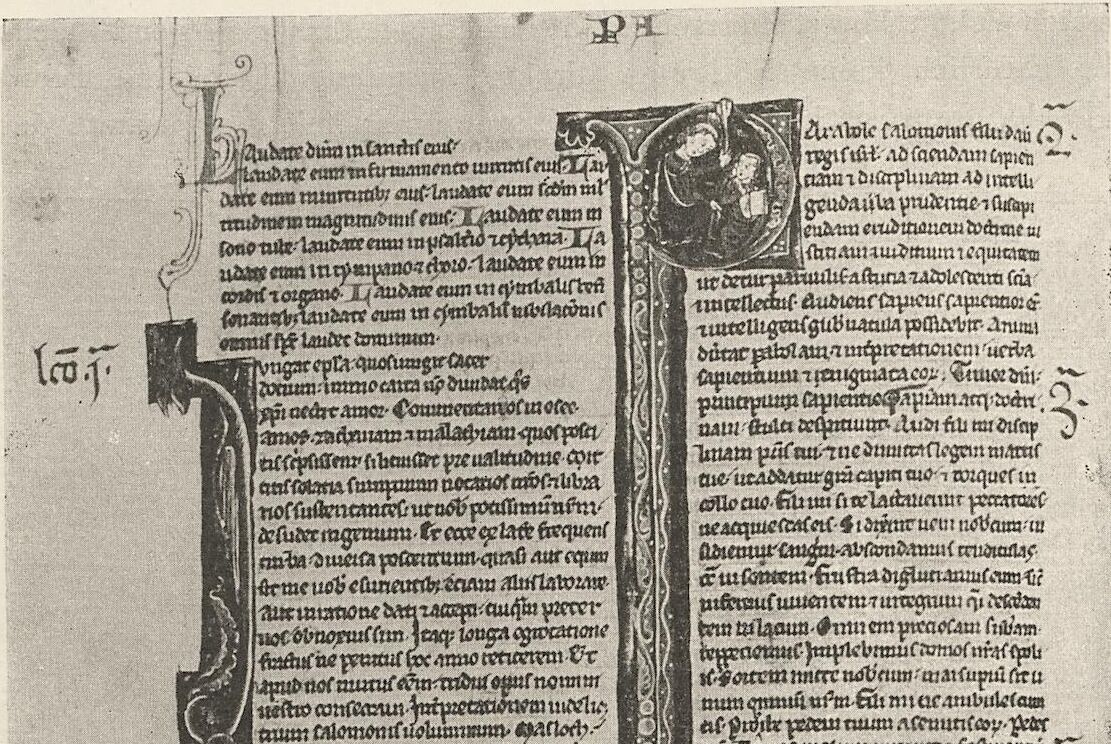 PI
Laudate dnm in sanctis eius·
laudate eum in firmamento uirtutis eius· Lau
date eum in uirtutib; eius· laudate eum scdm ml
titudinem magnitudinis eius· Laudate eum in
sono tube· laudate eum in psalterio ⁊ cythara· La
udate eum in tympano ⁊ choro· laudate eum in
cordis ⁊ organo· Laudate eum in cymbalis
sonantib; laudate eum in cymbalis
omnis sps laudet dominum·
Iungat epla· quos iungit sacer
dotium· immo carta nō diuidat qs
xpi nectit amor· Commentarios in osee·
amos· zachariam ⁊ malachiam· quos posci
tis scpsissem· si licuisset pre ualitudine· mit
titis solatia sumptuum notarios nros ⁊ libra
rios sustentantes· ut uob potissimum nrm·
desudet ingenium· Et ecce ex latere frequens
turba diuersa poscentium· quasi aut equum
sit me uob esurientib; aliis laborare·
aut in ratione dati ⁊ accepti· cuiqm preter
uos obnoxius sim· Itaq; longa egrotatione
fractus ne penitus hoc anno reticerem· Et
apud uos mutus eēm· tridui opus nomini
uestro consecraui· Interpretationem uidelic;
trium salomonis uoluminum· Masloth·
Parabole salomonis filii dauid
regis isrl· ad sciendam sapien
tiam ⁊ disciplinam· ad intelli
genda uba prudentie· ⁊ suscipi
endam eruditionem doctrine iu
sticiam ⁊ iudicium ⁊ equitatem
ut detur paruulis astutia ⁊ adolescenti scia·
⁊ intellectus· Audiens sapiens sapientior erit
⁊ intelligens gubnacula possidebit· Animad
uertet parabolam· ⁊ interpretationem· uerba
sapientium ⁊ enigmata eor· Timor dni·
principium sapientie· Sapiam atq; doctri
nam· stulti despiciunt· Audi fili mi discip
linam pris tui· ⁊ ne dimittas legem matris
tue· ut addatur grā capiti tuo· ⁊ torques
collo tuo· Fili mi si te lactauerint peccatores
ne acquiescas eis· Si dixerint ueni nobcum· in
sidiemur sanguini· abscondamus tendiculas
insontem· frustra deglutiamus eum sic
infernus uiuentem ⁊ integrum qi descenden
tem in lacum· Omnem preciosam substam·
repperiemus· Implebimus domos nras spoli
is· Sortem mitte nobcum· marsupium sit u
num omnium nrm· Fili mi ne ambules cum
eis· Prohibe pedem tuum a semitis eor· Pedes
lcō·I·
2
3